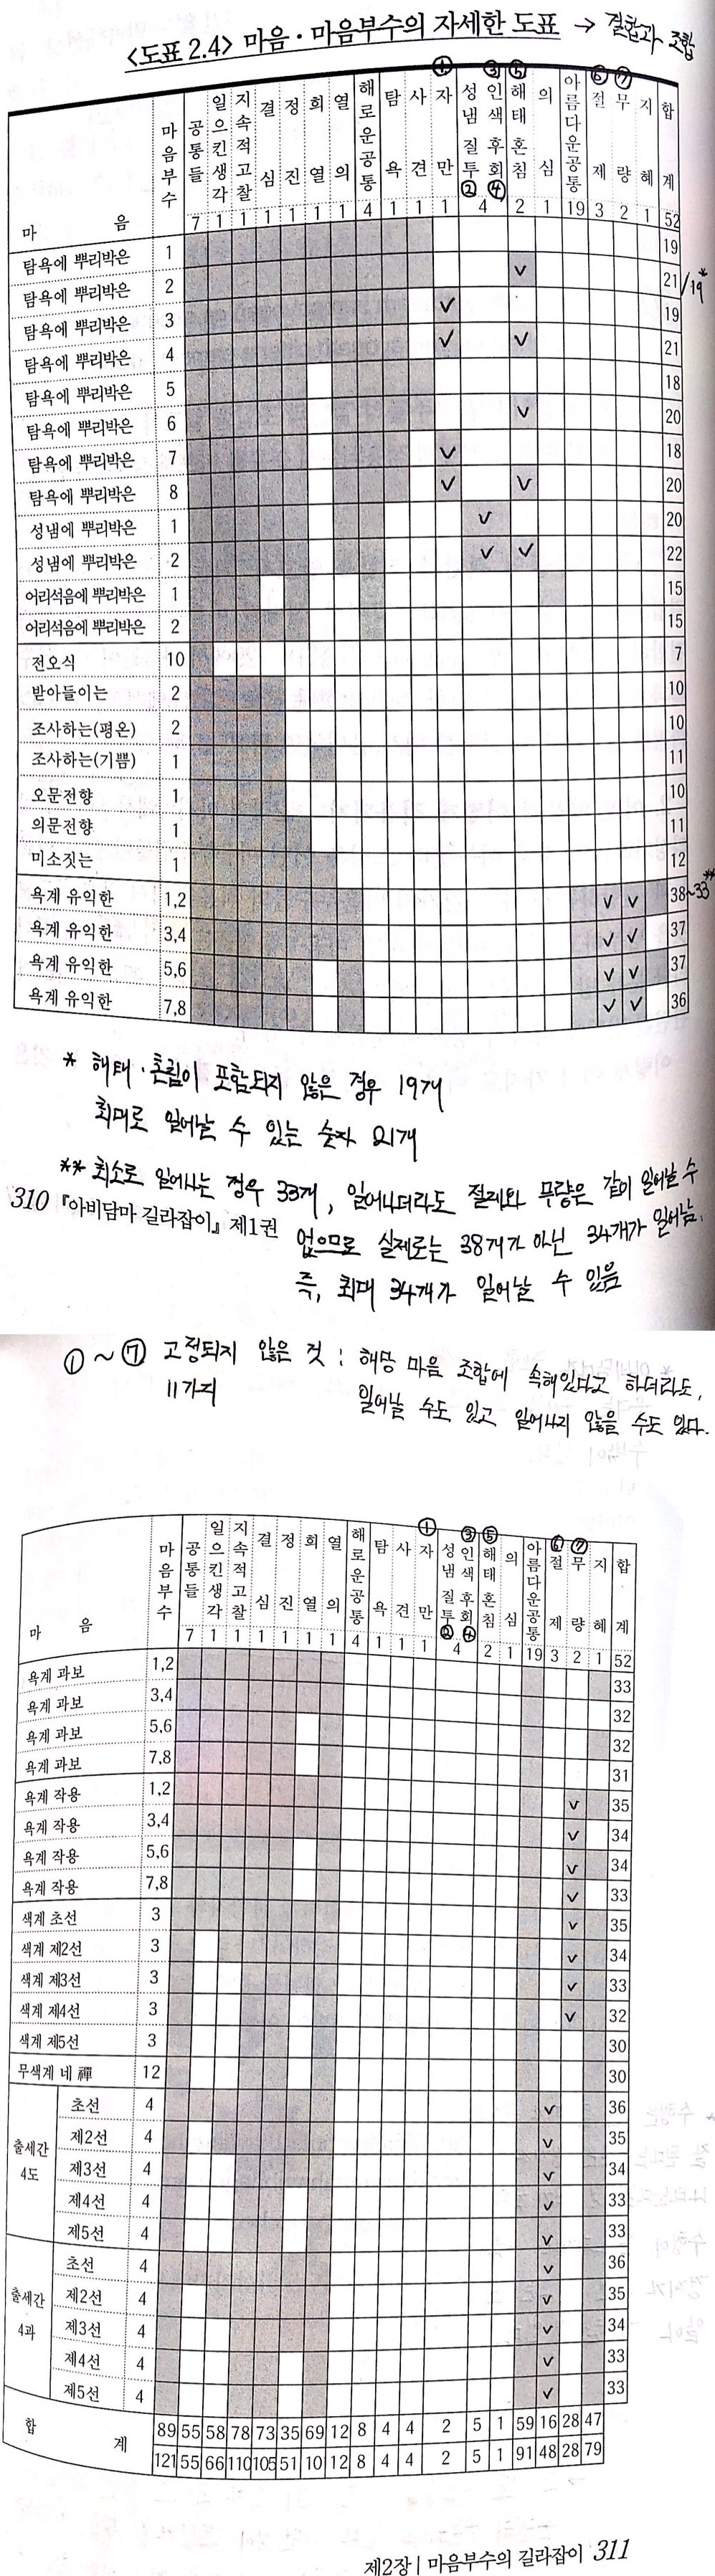 <도표 2.4> 마음·마음부수의 자세한 도표 → 결합과 조합
① ③ ⑤ ⑥ ⑦
마음 마음부수 공통들 일으킨생각 지속적고찰 결심 정진 희열 열의 해로운공통 탐욕 사견 자만 성냄 질투 인색 후회 해태 혼침 의심 아름다운공통 절제 무량 지혜 합계
② ④
7 1 1 1 1 1 1 4 1 1 1 4 2 1 19 3 2 1 52
탐욕에 뿌리박은 1 19
탐욕에 뿌리박은 2 ✓ 21/19*
탐욕에 뿌리박은 3 ✓ 19
탐욕에 뿌리박은 4 ✓ ✓ 21
탐욕에 뿌리박은 5 18
탐욕에 뿌리박은 6 ✓ 20
탐욕에 뿌리박은 7 ✓ 18
탐욕에 뿌리박은 8 ✓ ✓ 20
성냄에 뿌리박은 1 ✓ 20
성냄에 뿌리박은 2 ✓ ✓ 22
어리석음에 뿌리박은 1 15
어리석음에 뿌리박은 2 15
전오식 10 7
받아들이는 2 10
조사하는(평온) 2 10
조사하는(기쁨) 1 11
오문전향 1 10
의문전향 1 11
미소짓는 1 12
욕계 유익한 1,2 ✓ ✓ 38~33**
욕계 유익한 3,4 ✓ ✓ 37
욕계 유익한 5,6 ✓ ✓ 37
욕계 유익한 7,8 ✓ ✓ 36
* 해태·혼침이 포함되지 않은 경우 19개
최대로 일어날 수 있는 숫자 21개
** 최소로 일어나는 경우 33개, 일어나더라도 절제와 무량은 같이 일어날 수
310 『아비담마 길라잡이』 제1권
없으므로 실제로는 38개가 아닌 34개가 일어남.
즉, 최대 34개가 일어날 수 있음
① ~ ⑦ 고정되지 않은 것 : 해당 마음 조합에 속해있다고 하더라도,
11가지 일어날 수도 있고 일어나지 않을 수도 있다.
① ③ ⑤ ⑥ ⑦
마음 마음부수 공통들 일으킨생각 지속적고찰 결심 정진 희열 열의 해로운공통 탐욕 사견 자만 성냄 질투 인색 후회 해태 혼침 의심 아름다운공통 절제 무량 지혜 합계
② ④
7 1 1 1 1 1 1 4 1 1 1 4 2 1 19 3 2 1 52
욕계 과보 1,2 33
욕계 과보 3,4 32
욕계 과보 5,6 32
욕계 과보 7,8 31
욕계 작용 1,2 ✓ 35
욕계 작용 3,4 ✓ 34
욕계 작용 5,6 ✓ 34
욕계 작용 7,8 ✓ 33
색계 초선 3 ✓ 35
색계 제2선 3 ✓ 34
색계 제3선 3 ✓ 33
색계 제4선 3 ✓ 32
색계 제5선 3 30
무색계 네 禪 12 30
출세간 4도 초선 4 ✓ 36
제2선 4 ✓ 35
제3선 4 ✓ 34
제4선 4 ✓ 33
제5선 4 ✓ 33
출세간 4과 초선 4 ✓ 36
제2선 4 ✓ 35
제3선 4 ✓ 34
제4선 4 ✓ 33
제5선 4 ✓ 33
합계 89 55 58 78 73 35 69 12 8 4 4 2 5 1 59 16 28 47
121 55 66 110 105 51 10 12 8 4 4 2 5 1 91 48 28 79
제2장 | 마음부수의 길라잡이 311